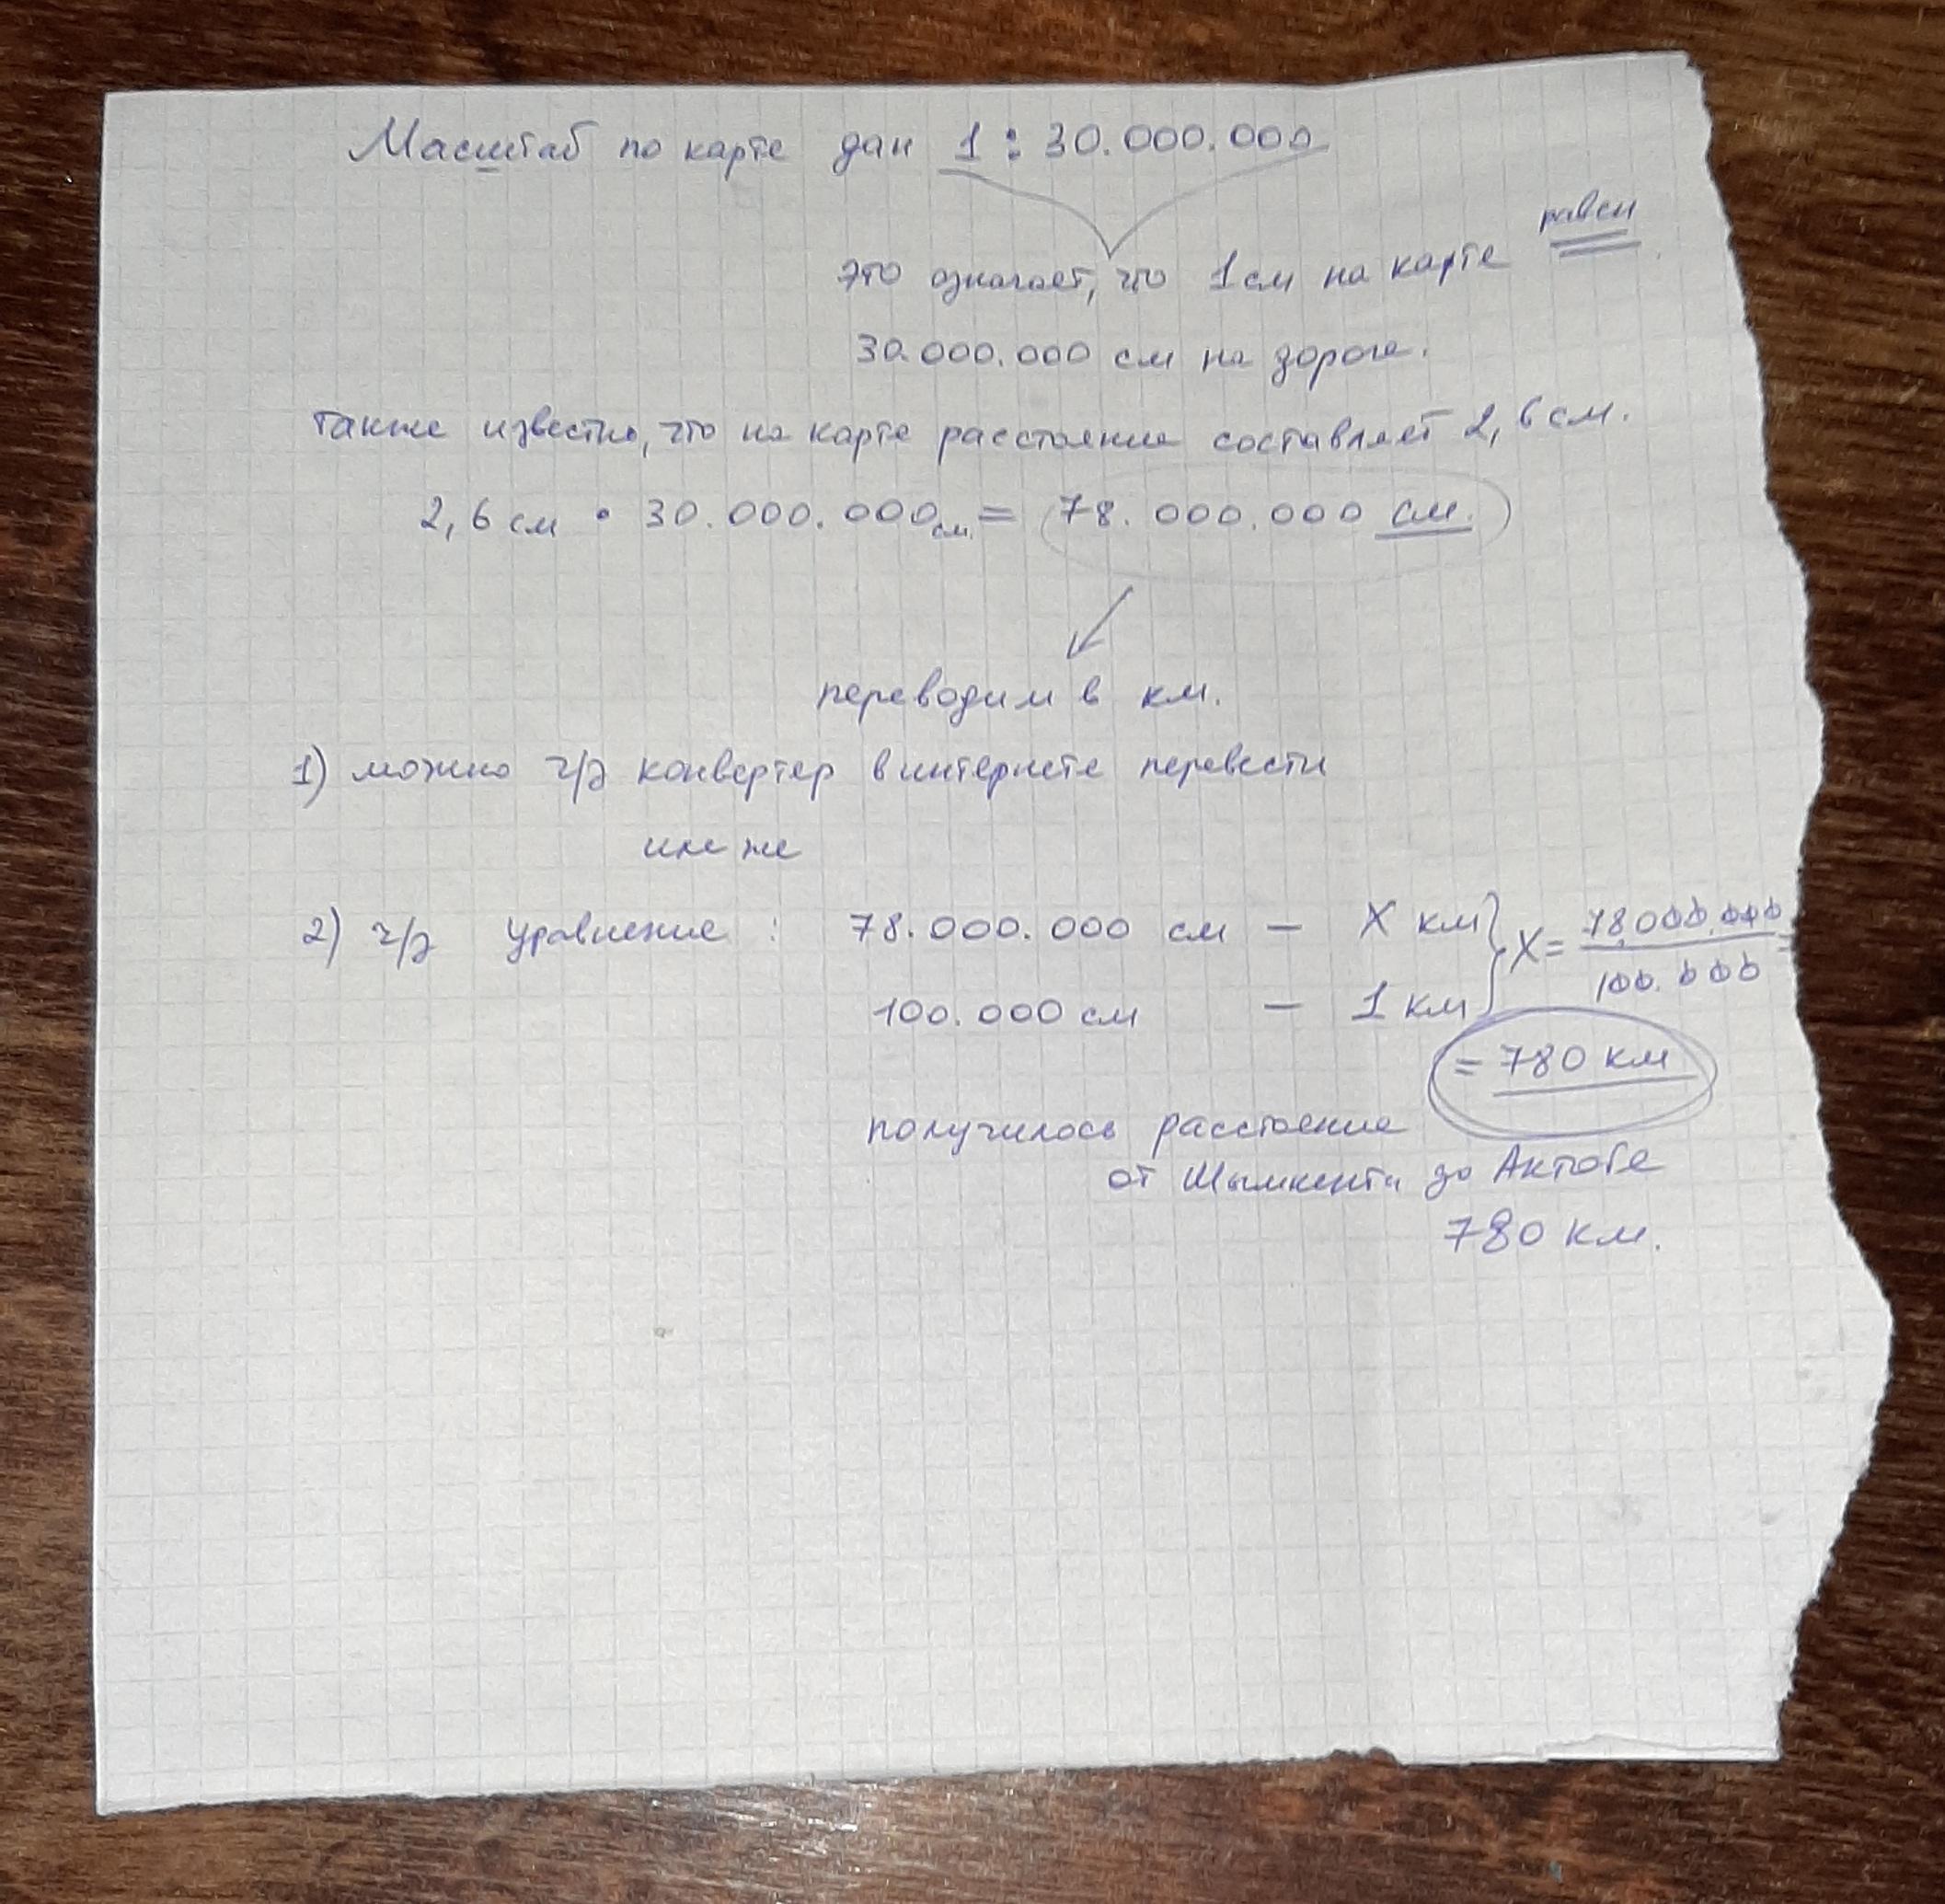 Масштаб по карте дан 1 : 30.000.000
это означает, что 1 см на карте равен
30.000.000 см на дороге.
также известно, что на карте расстояние составляет 2,6 см.
2,6 см • 30.000.000 см = 78.000.000 см.
переводим в км.
1) можно ч/з конвертер в интернете перевести
или же
2) ч/з уравнение : 78.000.000 см — X км } X = 78.000.000 / 100.000 =
100.000 см — 1 км
= 780 км
получилось расстояние
от Шымкента до Актобе
780 км.